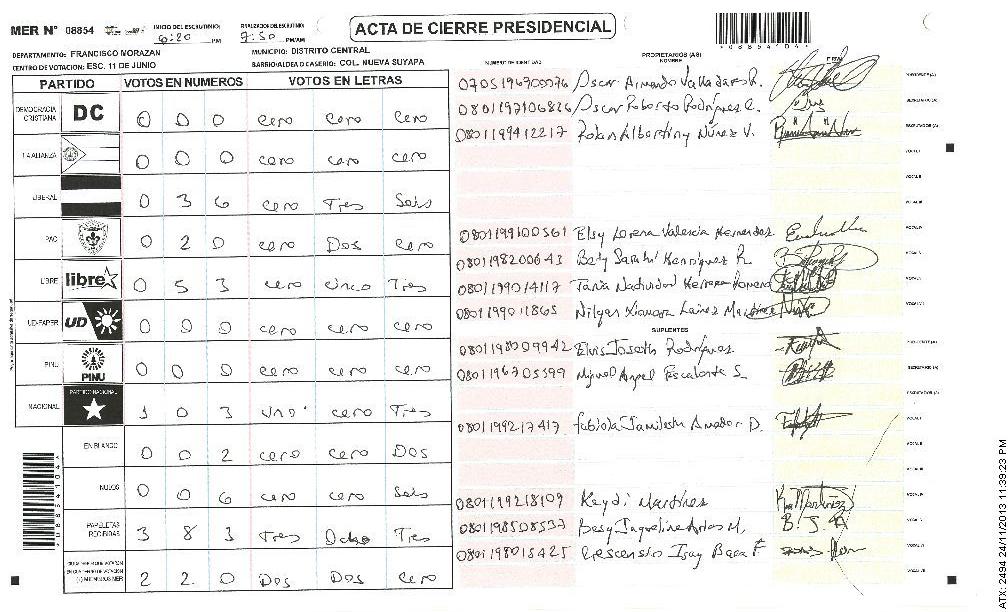 MER N° 08854
INICIO DEL ESCRUTINIO: 6:20 PM
FINALIZACION DEL ESCRUTINIO: 7:50 PM/AM
ACTA DE CIERRE PRESIDENCIAL
DEPARTAMENTO: FRANCISCO MORAZAN
MUNICIPIO: DISTRITO CENTRAL
CENTRO DE VOTACION: ESC. 11 DE JUNIO
BARRIO/ALDEA O CASERIO: COL. NUEVA SUYAPA
PARTIDO VOTOS EN NUMEROS VOTOS EN LETRAS
DEMOCRACIA CRISTIANA DC 0 0 0 cero cero cero
LA ALIANZA 0 0 0 cero cero cero
LIBERAL 0 3 6 cero Tres Seis
PAC 0 2 0 cero Dos cero
LIBRE libre 0 5 3 cero cinco Tres
UD-FAPER UD 0 0 0 cero cero cero
PINU PINU 0 0 0 cero cero cero
NACIONAL PARTIDO NACIONAL 1 0 3 uno cero Tres
EN BLANCO 0 0 2 cero cero Dos
NULOS 0 0 6 cero cero Seis
PAPELETAS RECIBIDAS 3 8 3 Tres Ocho Tres
2 2 0 Dos Dos cero
NUMERO DE IDENTIDAD PROPIETARIOS (AS) NOMBRE FIRMA
0705196700076 Oscar Armando Valladares R. PRESIDENTE (A)
0801197106826 Oscar Roberto Rodríguez C. SECRETARIO (A)
0801199412217 Rolan Albertiny Núnez V. ESCRUTADOR (A)
VOCAL I
VOCAL II
VOCAL III
0801199100561 Elsy Lorena Valencia Hernandez VOCAL IV
0801198200643 Bety Sarahí Henriquez R. VOCAL V
0801199014117 Tania Natividad Herrera VOCAL VI
0801199011865 Xiomara Lainez Martínez VOCAL VII
SUPLENTES
0801198009942 Elvis Joseth Rodríguez PRESIDENTE (A)
0801196705599 Miguel Angel Escalante S. SECRETARIO (A)
ESCRUTADOR (A)
0801199217417 Fabiola Jamileth Amador D. VOCAL I
VOCAL II
VOCAL III
0801199218109 Keydi Martínez VOCAL IV
0801198508537 Besy Jaqueline M. VOCAL V
0801198015425 Crescencio Isay Baca F VOCAL VI
VOCAL VII
ATX: 2494 24/11/2013 11:39:23 PM